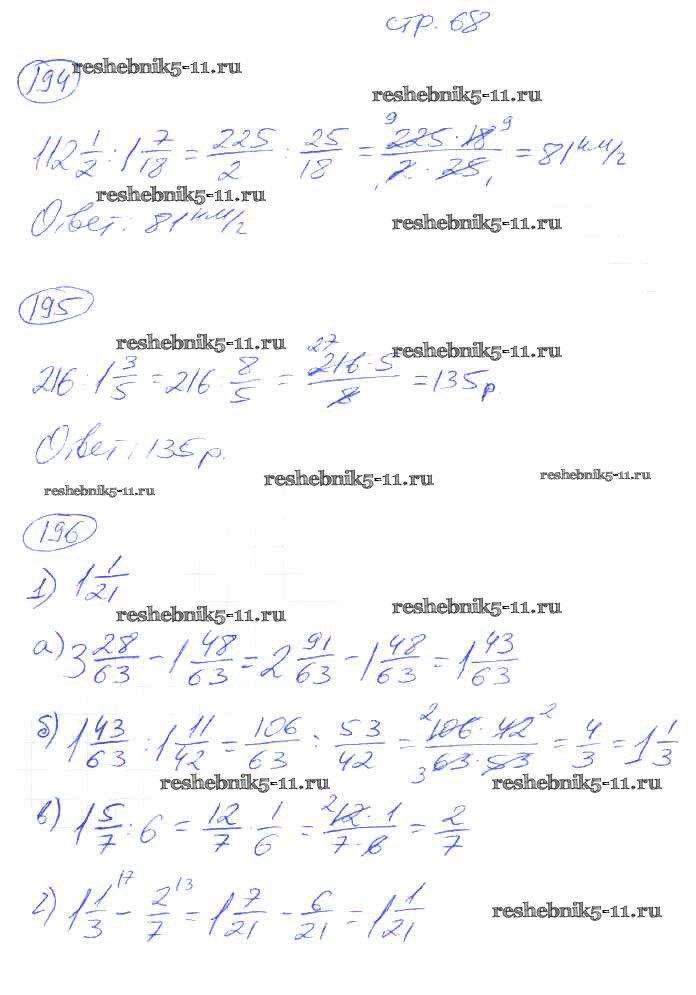 стр. 68
194
reshebnik5-11.ru
reshebnik5-11.ru
112 1/2 : 1 7/18 = 225/2 : 25/18 = 225 · 18 / 2 · 25 = 81 км/г
9 9 1 1
reshebnik5-11.ru
Ответ: 81 км/г
reshebnik5-11.ru
195
reshebnik5-11.ru
reshebnik5-11.ru
216 : 1 3/5 = 216 : 8/5 = 216 · 5 / 8 = 135 р.
27
Ответ: 135 р.
reshebnik5-11.ru
reshebnik5-11.ru
reshebnik5-11.ru
196
1) 1 1/21
reshebnik5-11.ru
reshebnik5-11.ru
а) 3 28/63 - 1 48/63 = 2 91/63 - 1 48/63 = 1 43/63
б) 1 43/63 : 1 11/42 = 106/63 : 53/42 = 106 · 42 / 63 · 53 = 4/3 = 1 1/3
2 2 3
reshebnik5-11.ru
reshebnik5-11.ru
в) 1 5/7 : 6 = 12/7 · 1/6 = 12 · 1 / 7 · 6 = 2/7
2
г) 1 1/3 - 2/7 = 1 7/21 - 6/21 = 1 1/21
17 13
reshebnik5-11.ru